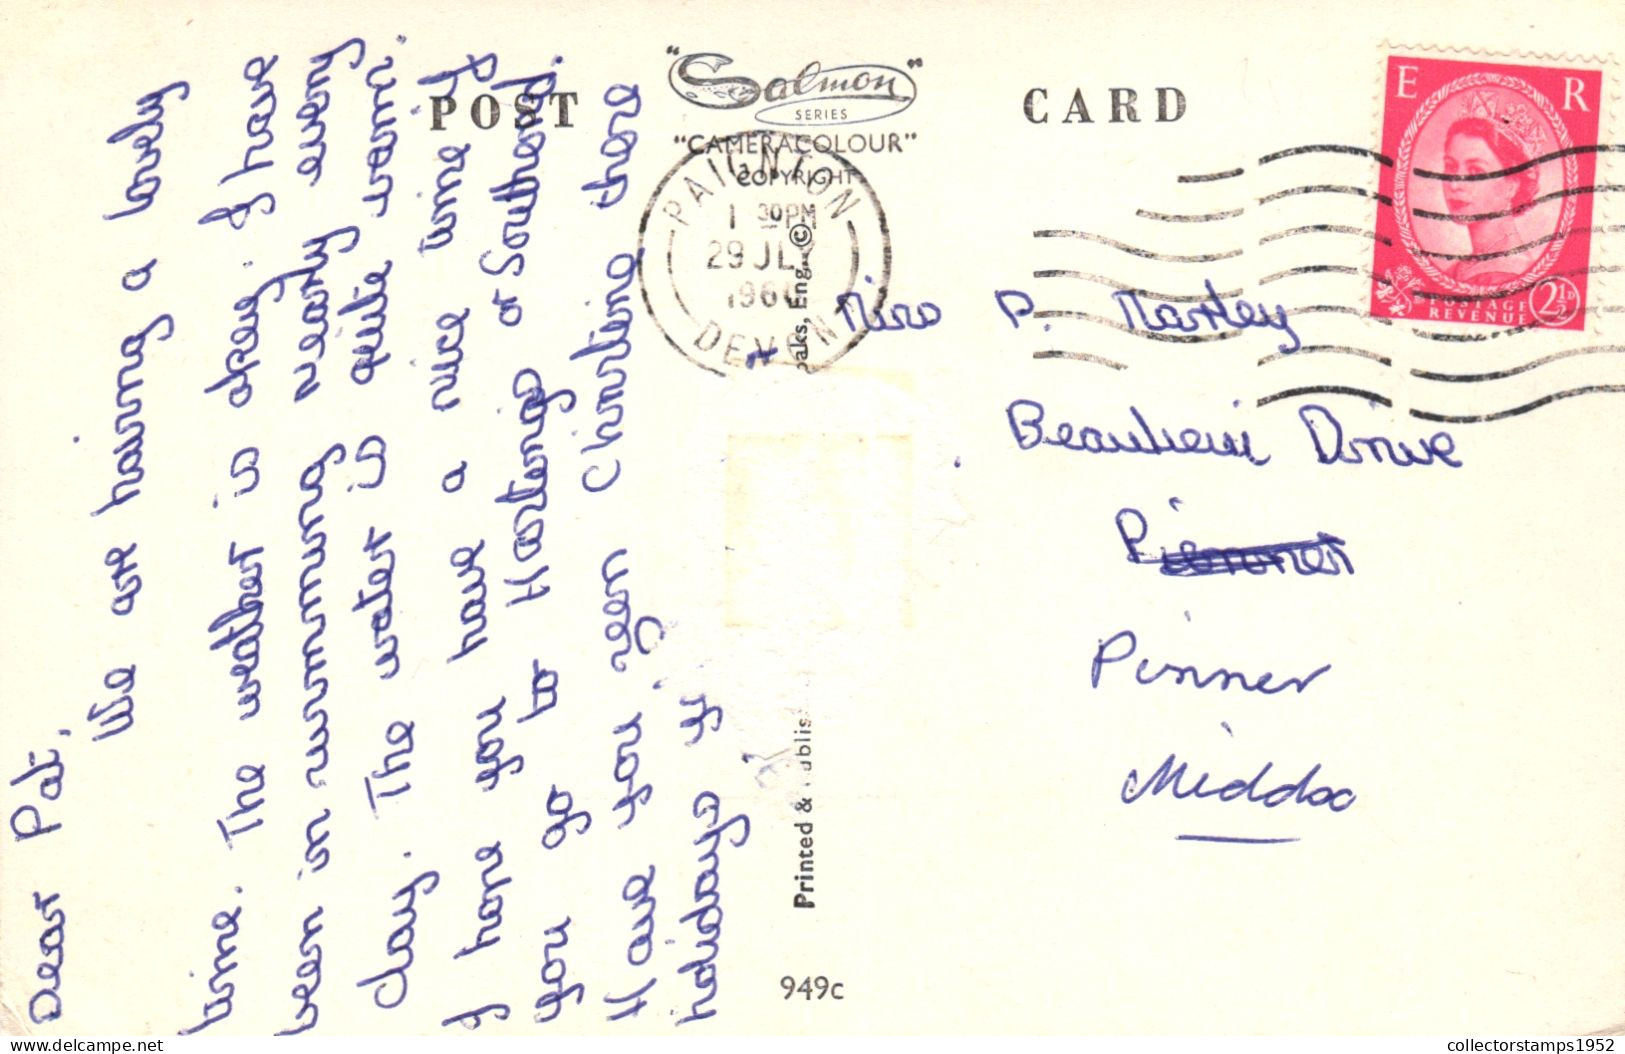 Dear Pat,
We are having a lovely
time. The weather is okay. I have
been in swimming nearly every
day. The water is quite warm.
I hope you have a nice time if
you go to Hastings or Southend.
Have you seen Christine there
holidays
POST CARD
"Salmon"
SERIES
"CAMERACOLOUR"
COPYRIGHT
PAIGNTON
1 30PM
29 JLY
196
DEVON
Printed &
oaks, Eng. ©
949c
E R
POSTAGE
REVENUE
2½D
Miss P.
Beaulieu Drive
Pinner
Middx
collectorstamps1952
www.delcampe.net